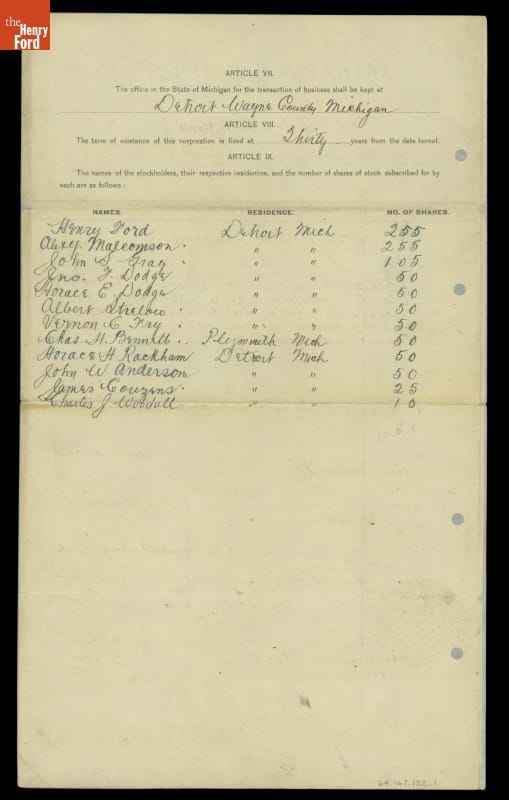 the
Henry
Ford
ARTICLE VII.
The office in the State of Michigan for the transaction of business shall be kept at
Detroit Wayne County Michigan
ARTICLE VIII.
The term of existence of this corporation is fixed at Thirty years from the date hereof.
ARTICLE IX.
The names of the stockholders, their respective residences, and the number of shares of stock subscribed for by
each are as follows :
NAMES. RESIDENCE. NO. OF SHARES.
Henry Ford Detroit Mich 255
Alex Y. Malcomson " " 255
John S. Gray " " 105
Jno. F. Dodge " " 50
Horace E. Dodge " " 50
Albert Strelow " " 50
Vernon C. Fry " " 50
Chas. H. Bennett Plymouth Mich 50
Horace H. Rackham Detroit Mich 50
John W. Anderson " " 50
James Couzens " " 25
Charles J. Woodall " " 10
64.167.122.1